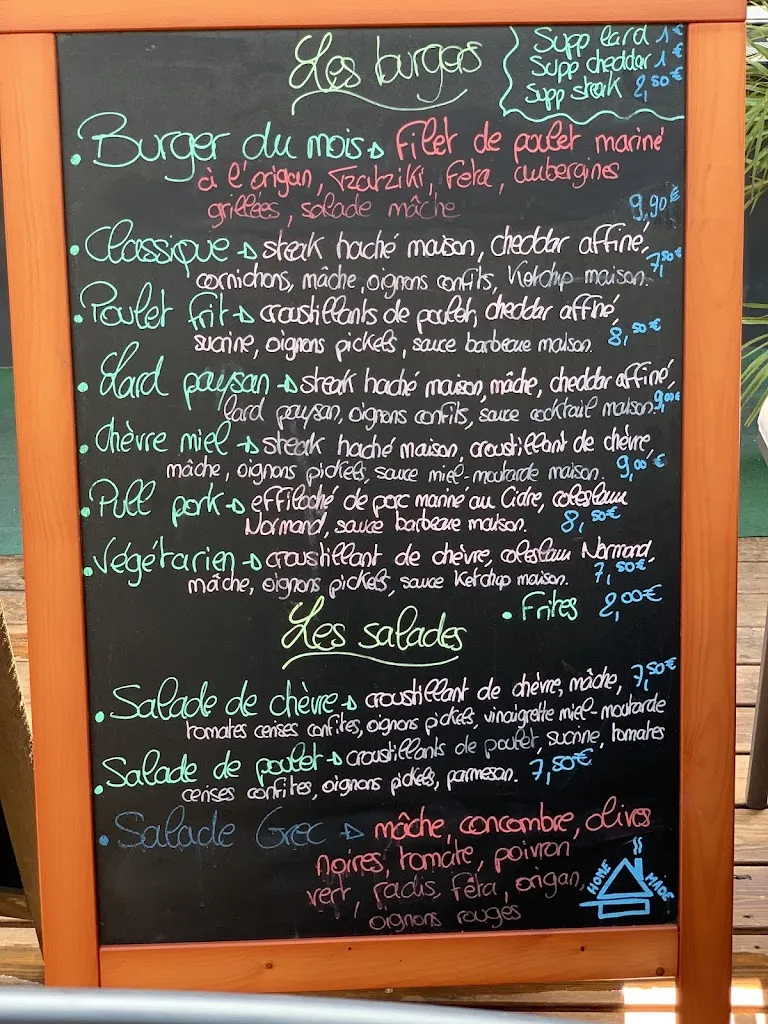 Les burgers
Supp lard 1€
Supp cheddar 1€
Supp steak 2,50€
• Burger du mois → Filet de poulet mariné
à l'origan, Tzatziki, Feta, aubergines
grillées, salade mâche 9,90€
• Classique → steak haché maison, cheddar affiné,
cornichons, mâche, oignons confits, Ketchup maison. 7,50€
• Poulet frit → croustillants de poulet, cheddar affiné,
sucrine, oignons pickels, sauce barbecue maison. 8,50€
• Lard paysan → steak haché maison, mâche, cheddar affiné,
lard paysan, oignons confits, sauce cocktail maison. 9,00€
• Chèvre miel → steak haché maison, croustillant de chèvre,
mâche, oignons pickels, sauce miel-moutarde maison. 9,00€
• Pull pork → effiloché de porc mariné au Cidre, coleslaw
Normand, sauce barbecue maison. 8,50€
• Végétarien → croustillant de chèvre, coleslaw Normand,
mâche, oignons pickels, sauce Ketchup maison. 7,50€
• Frites 2,00€
Les salades
• Salade de chèvre → croustillant de chèvre, mâche, 7,50€
tomates cerises confites, oignons pickels, vinaigrette miel-moutarde
• Salade de poulet → croustillants de poulet, sucrine, tomates
cerises confites, oignons pickels, parmesan. 7,50€
• Salade Grec → mâche, concombre, olives
noires, tomate, poivron
vert, radis, fêta, origan,
oignons rouges
HOME MADE